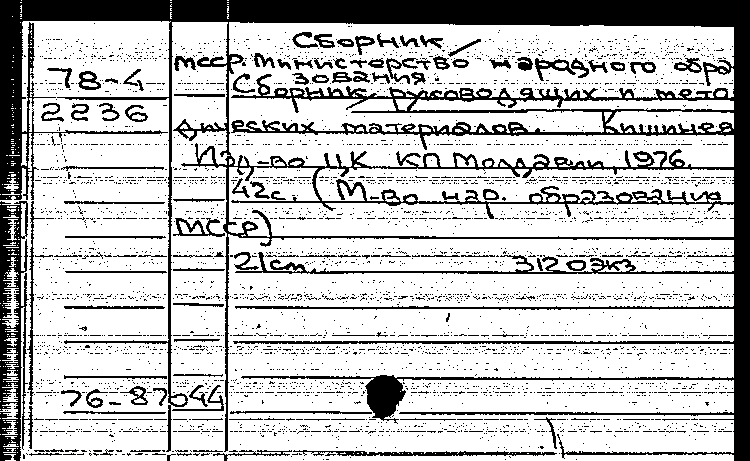 Сборник
МССР. Министерство народного обра-
зования.
78-4
2236
Сборник руководящих и мето-
дических материалов. Кишинев
Изд-во ЦК КП Молдавии, 1976.
42с. (М-во нар. образования
МССР)
21см. 3120экз
76-87044